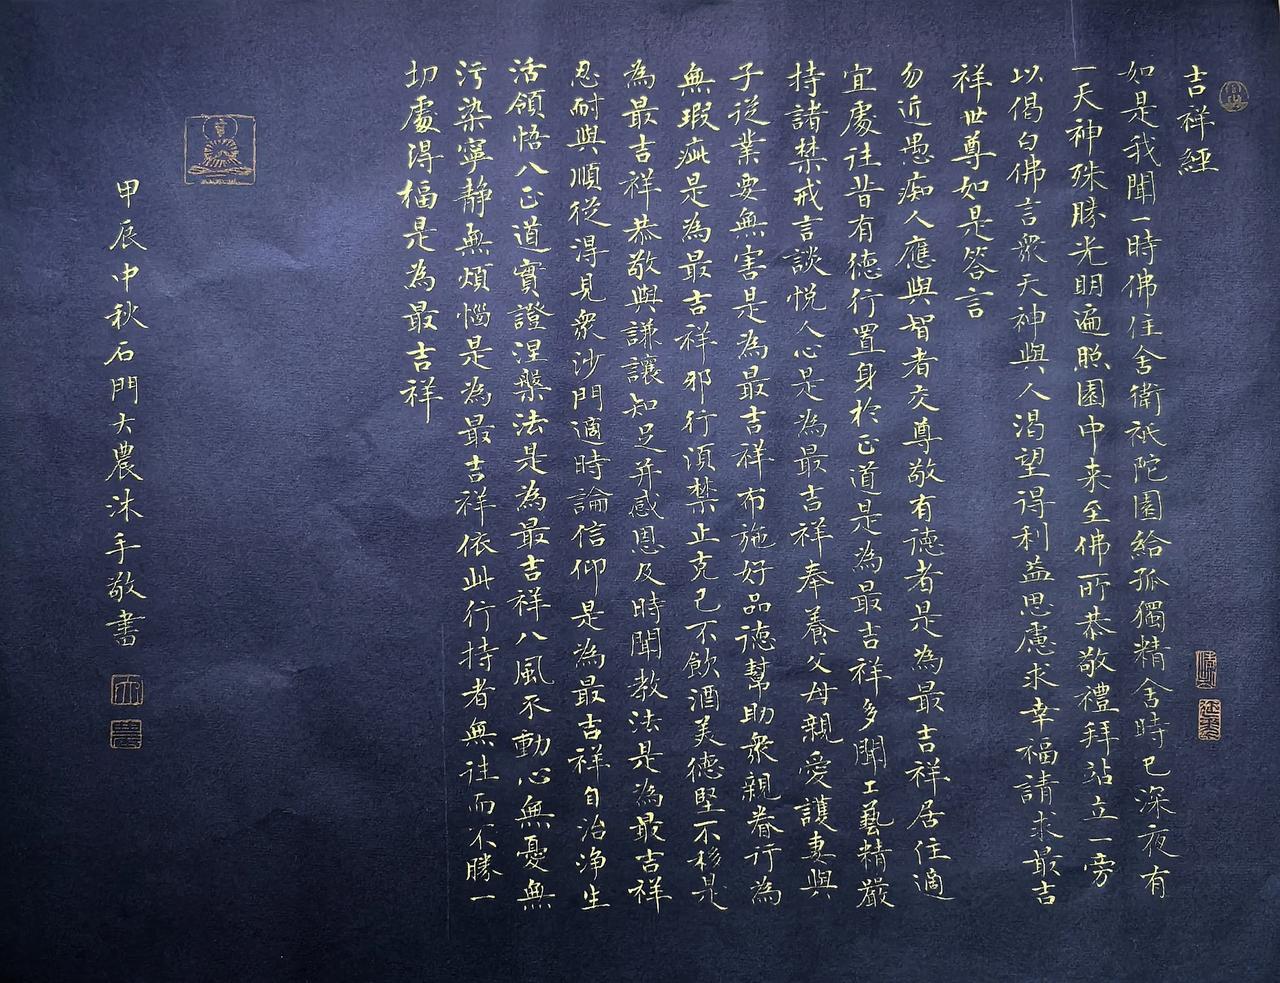 吉祥經
如是我聞一時佛住舍衛祇陀園給孤獨精舍時已深夜有
一天神殊勝光明遍照園中来至佛所恭敬禮拜站立一旁
以偈白佛言衆天神與人渴望得利益思慮求幸福請求最吉
祥世尊如是答言
勿近愚痴人應與智者交尊敬有德者是為最吉祥居住適
宜處往昔有德行置身於正道是為最吉祥多聞工藝精嚴
持諸禁戒言談悅人心是為最吉祥奉養父母親愛護妻與
子從業要無害是為最吉祥布施好品德幫助衆親眷行為
無瑕疵是為最吉祥邪行須禁止克己不飲酒美德堅不移是
為最吉祥恭敬與謙讓知足并感恩及時聞教法是為最吉祥
忍耐與順從得見衆沙門適時論信仰是為最吉祥自治淨生
活領悟八正道實證涅槃法是為最吉祥八風不動心無憂無
污染寧静無煩惱是為最吉祥依此行持者無往而不勝一
切處得福是為最吉祥
甲辰中秋石門大農沐手敬書
大
農